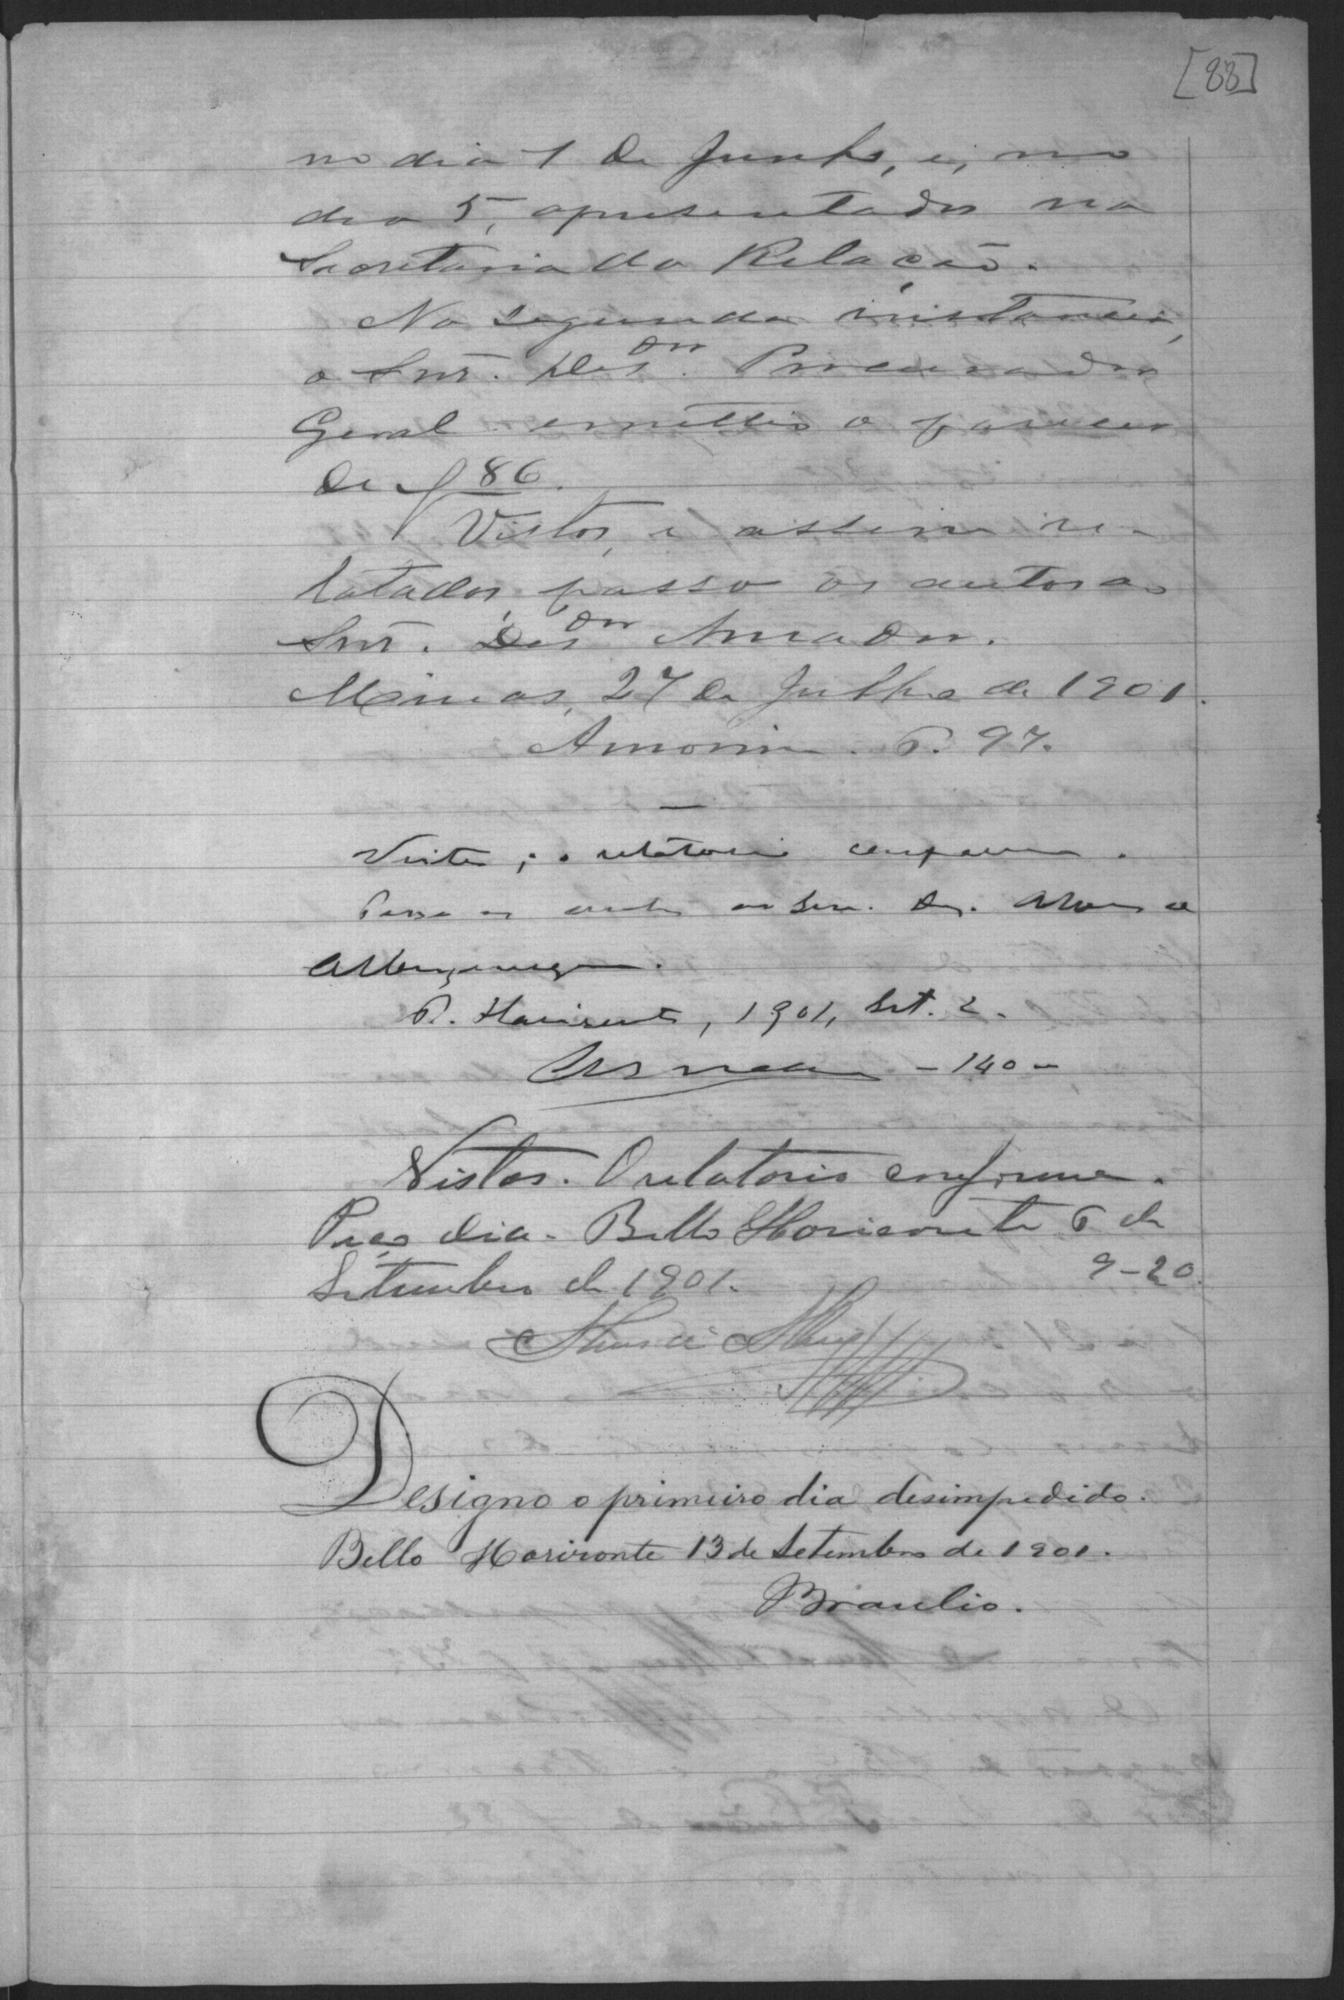 [88]
no dia 1 de Junho, e, no
dia 5, apresentados na
Secretaria da Relação.
Na segunda instancia,
o Snr. Des.dor Procurador
Geral emittio o parecer
de f 86.
Vistos, e assim re-
latados passo os autos ao
Snr. Des.dor Amador.
Minas, 27 de Julho de 1901.
Amorim. P. 97.
Vistos; o relatorio conforme.
Passo os autos ao Snr. Des. Alves de
Albuquerque.
B. Horisonte, 1901, Set. 2.
– 140 –
Vistos. O relatorio conforme.
Peço dia. Bello Horisonte 6 de
Setembro de 1901. 9–20.
Designo o primeiro dia desimpedido.
Bello Horizonte 13 de Setembro de 1901.
Braulio.